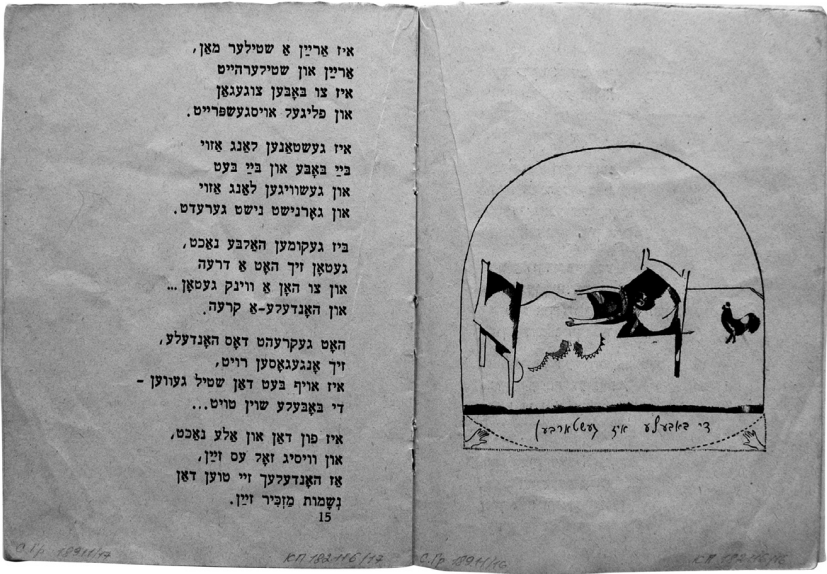 איז אַרײַן אַ שטילער מאַן,
אַרײַן און שטילערהייט
איז צו באָבען צוגעגאַן
און פליגעל אויסגעשפּרייט.
איז געשטאַנען לאַנג אַזוי
בײַ באָבע און בײַ בעט
און געשוויגען לאַנג אַזוי
און גאָרנישט נישט גערעדט.
ביז געקומען האַלבע נאַכט,
געטאָן זיך האָט אַ דרעה
און צו האָן אַ ווינק געטאָן...
און האָנדעלע–אַ קרעה.
האָט געקרעהט דאָס האָנדעלע,
זיך אָנגעגאָסען רויט,
איז אויף בעט דאַן שטיל געווען –
די באָבעלע שוין טויט...
איז פון דאַן און אַלע נאַכט,
און וויסיג זאָל עס זײַן,
אַז האָנדעלעך זיי טוען דאַן
נְשָמוֹת מַזְכִּיר זײַן.
15
די באָבעלע איז געשטאָרבען
С.Гр 1891/17
КП 182116/17
С.Гр 1891/16
КП 182116/16